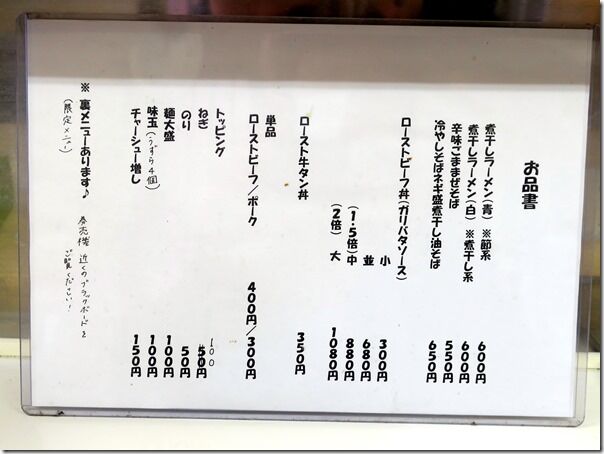 お品書
煮干しラーメン(青) ※節系 600円
煮干しラーメン(白) ※煮干し系 600円
辛味ごままぜそば 550円
冷やしそばネギ盛煮干し油そば 650円
ローストビーフ丼(ガリバタソース)
小 300円
並 680円
(1.5倍) 中 880円
(2倍) 大 1080円
ロースト牛タン丼 350円
単品
ローストビーフ/ポーク 400円/300円
トッピング
ねぎ 50円 100
のり 50円
麺大盛 100円
味玉(うずら4個) 100円
チャーシュー増し 150円
※ 裏メニューあります♪ 券売機 近くのブラックボードを
(限定メニュー) ご覧ください!